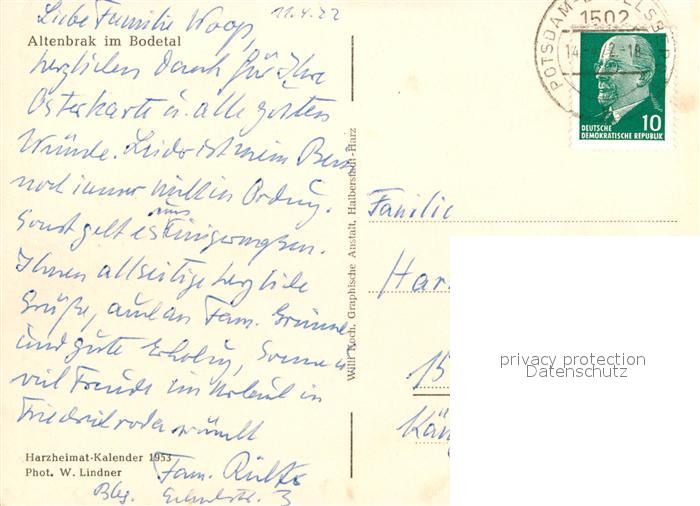 11.4.72
Liebe Familie Woop,
Altenbrak im Bodetal
herzlichen Dank für Ihre
Osterkarte u. alle guten
Wünsche. Leider ist mein Bein
noch immer nicht in Ordng.
Sonst geht es uns einigermaßen.
Ihnen allseitige herzliche
Grüße, auch an Fam.
und gute Erholung, Sonne u.
viel Freude im Urlaub in
Friedrichroda wünscht
Harzheimat-Kalender 1953
Phot. W. Lindner
Fam.
Bbg. 3
Willi Koch, Graphische Anstalt, Halberstadt-Harz
POTSDAM-BABELSBERG
1502
DEUTSCHE
DEMOKRATISCHE REPUBLIK
10
Familie
Har
15
privacy protection
Datenschutz